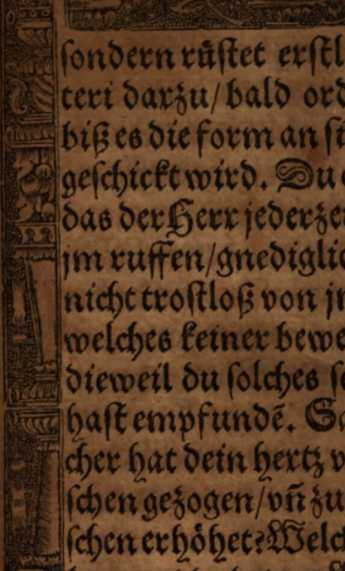 sondern rüstet erstl
teri darzu/ bald ord
biß es die form an si
geschickt wird. Du
das der Herr jederzei
jm ruffen/gnediglic
nicht trostloß von jr
welches keiner bewe
dieweil du solches s
hast empfundē. So
cher hat dein hertz v
schen gezogen/vn̄ zu
schen erhöhet? Welc